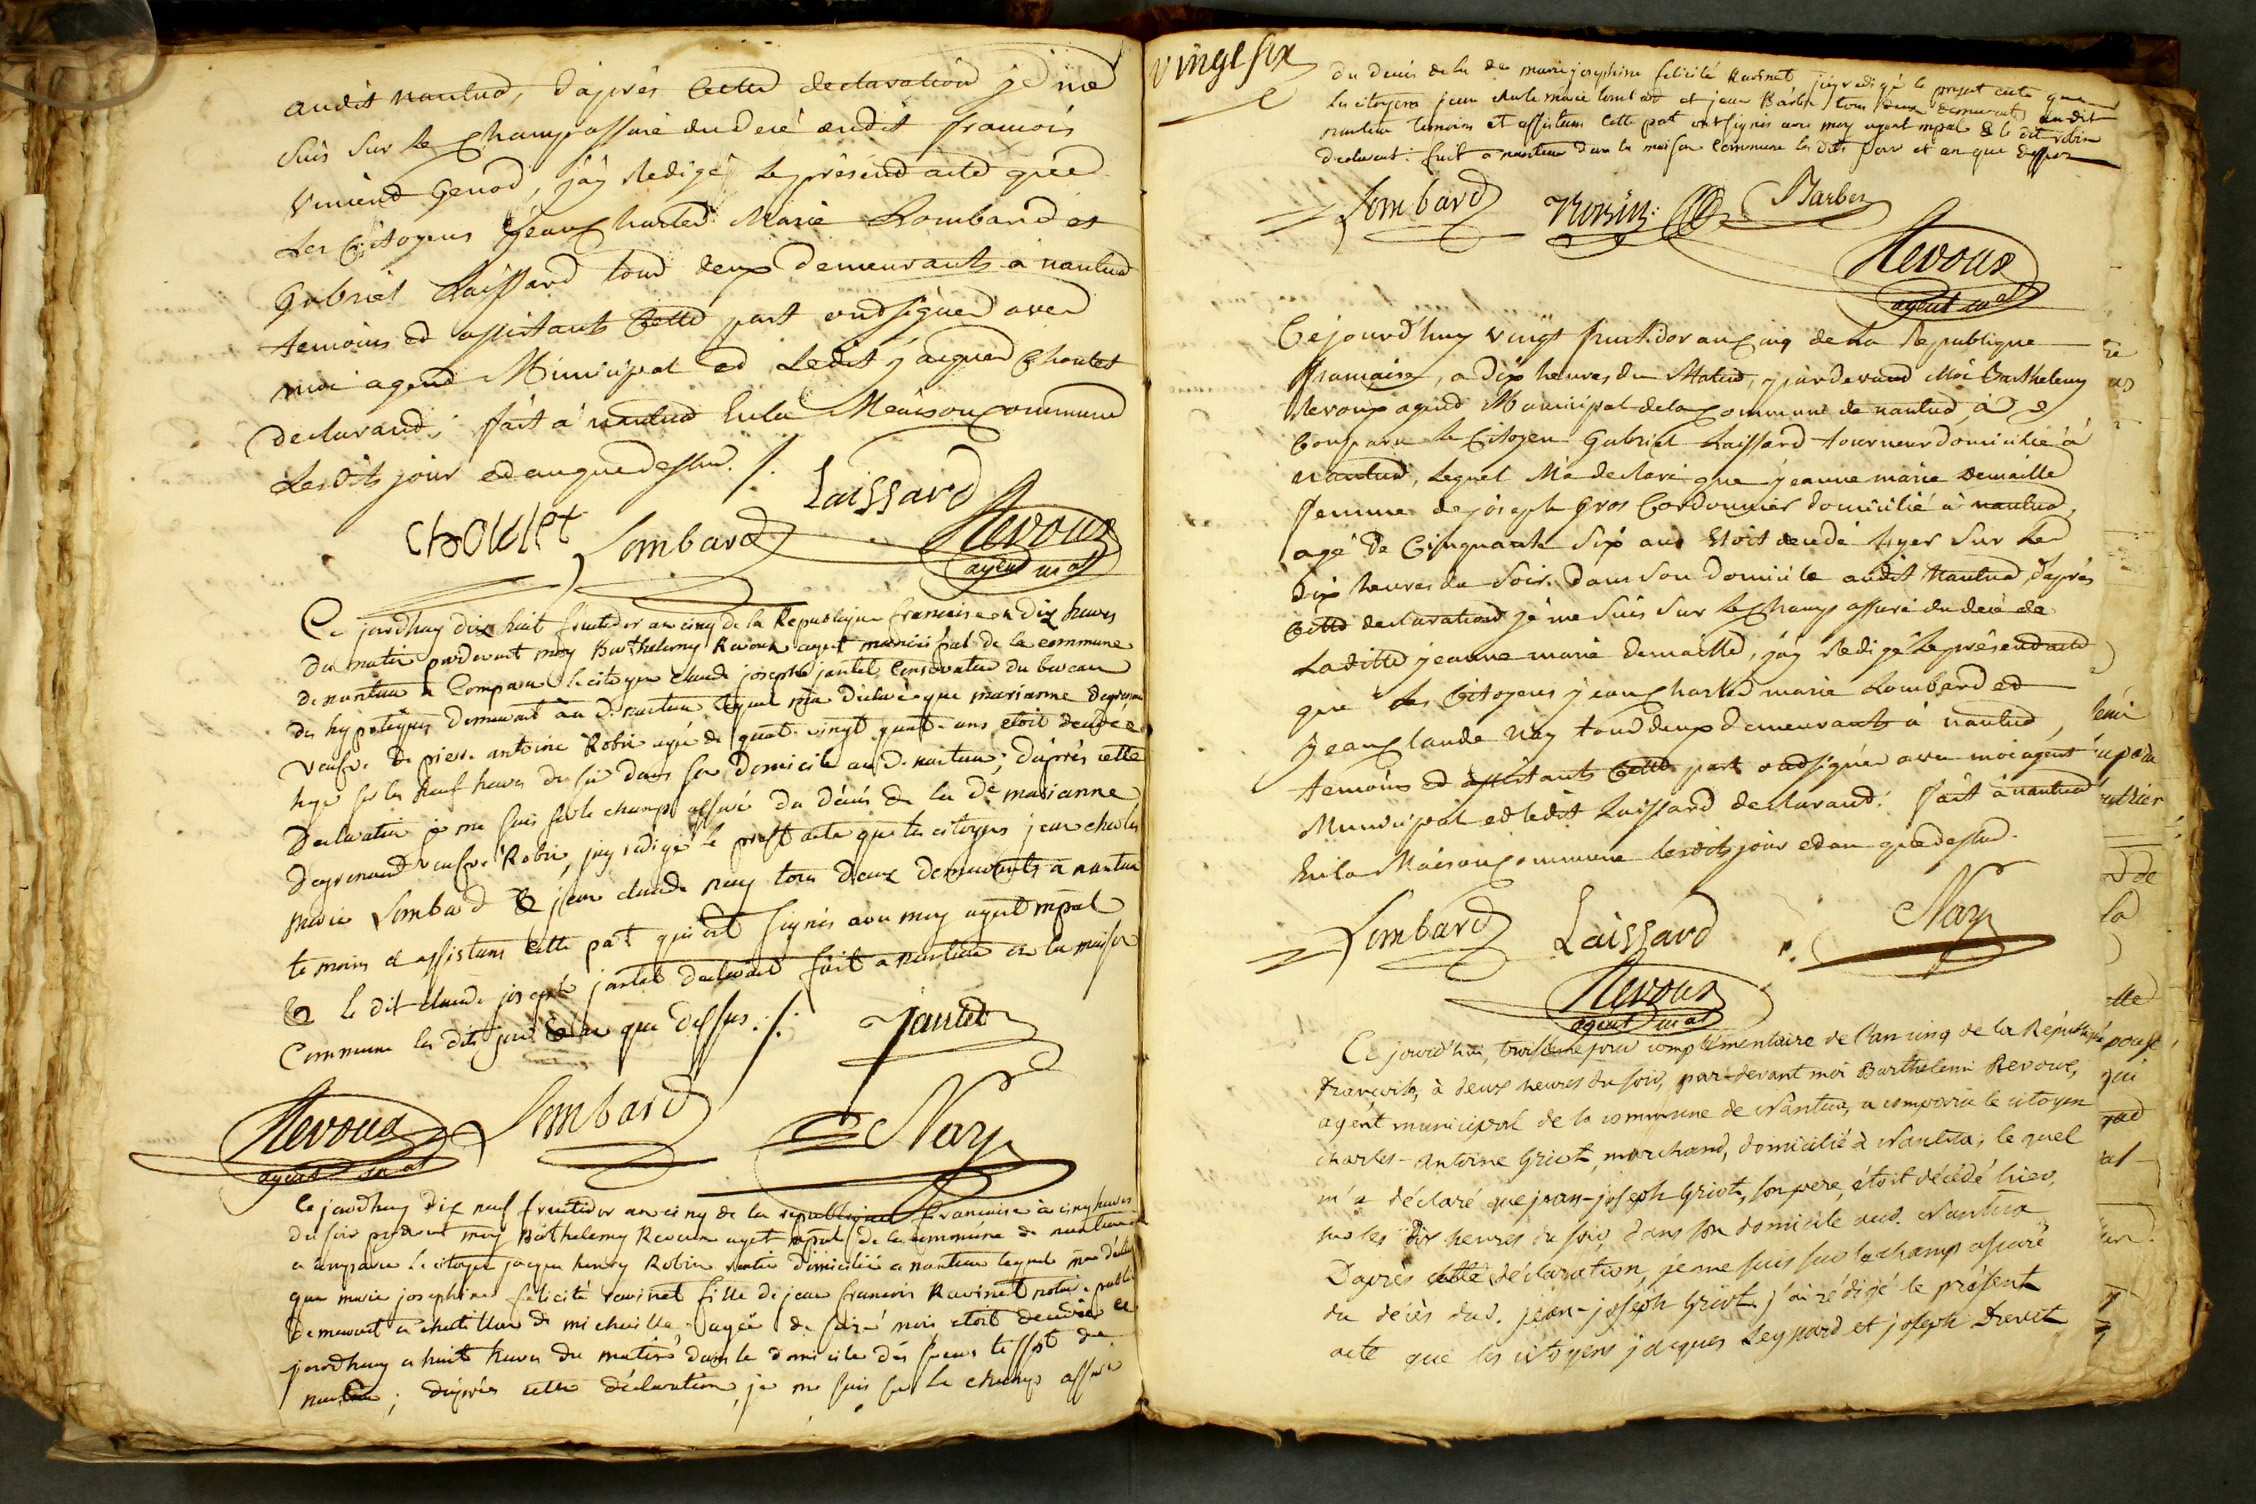 audit nantua, d'après cette declaration je me
suis sur le champ assuré du decé dudit francois
Vincend Genod, j'ay Redigé le présend acte que
Les Citoyens Jean Charles Marie Lombard et
Gabriel Laissard tous deux demeurants à nantua
temoins et assistants cette part ond signer avec
moi agend Municipal et Ledit jacques Choulet
declarand; fait à nantua En la Maison Commune
Lesdits jour et an que dessus ./.
Laissard
Choulet Lombard Revoux
agent mal
Ce jourdhuy dix huit fructidor an cinq de la Republique francaise a Dix heures
du matin pardevant moy Barthelemy Revoux agent municipal de la commune
de nantua a Comparu le citoyen claude joseph jantet Conservateur du bureau
des hypoteques demeurant au d. nantua lequel ma déclaré que marianne
veufve de pierre antoine Robin agé de quatre vingt quatre ans etoit decedee
hyer sur les neuf heures du soir dans son Domicile au d. nantua; d'après cette
Declaration je me suis sur le champ assuré du décés de la de marianne
veufve Robin, j'ay redigé le prest acte que les citoyens jean charles
marie Lombard & jean claude nay tous deux demeurants a nantua
te moins et assistans cette part qui ont signés avec moy agent mpal
& le dit claude joseph jantet declarant fait a nantua en la maison
Commune les dits jour & an que dessus ./.
Jantet
Revoux Lombard Nay
agent mal
Ce jourdhuy dix neuf fructidor an cinq de la republique francaise à cinq heures
du soir pardevant moy Barthelemy Revoux agent mpal de la commune de nantua
a comparu le citoyen jacques henry Robin domicilié a nantua lequel ma déclaré
que marie josephine felicité ravinet fille de jean francois Ravinet notaire public
demeurant a chatillon de michaille agée de seize mois etoit decedée ce
jourdhuy a huit heures du matin dans le domicile
nantua; d'après cette déclaration je me suis sur le champ assuré
vingt six
du decés de la de marie josephine felicité Ravinet j'ay redigé le present acte que
les citoyens jean charle marie lombard et jean Barbe tous deux demeurant audit
nantua temoins et assistans cette part ont signés avec moy agent mpal & le dit robin
declarant: fait a nantua dans la maison Commune les dits jour et an que dessus
Lombard Robin Barbe
Revoux
agent mal
Cejourd'huy vingt fructidor an Cinq de la Republique
francaise, a dix heures du Matin, pardevand Moi Barthelemy
Revoux agend Municipal de la Commune de nantua, a
Comparu le Citoyen Gabriel Laissard tourneur domicilié à
nantua, Lequel M'a declaré que jeanne marie Demaille
femme de joseph Gros Cordonnier domicilié à nantua,
agé de Cinquante Six ans Etoit decedé hyer sur Les
dix heures du Soir dans son domicile audit Nantua, d'après
Cette declaration je me suis sur le champ assuré du decé de
Laditte jeanne marie Demaille, j'ay Redigé le présend acte
que Les Citoyens jean Charles marie Lombard et
jean Claude Nay tous deux demeurants à nantua,
temoins et assistants Cette part ond signér avec moi agent
Municipal et ledit Laissard declarand. fait à nantua
En la Maison Commune lesdits jour et an que dessus.
Lombard Laissard Nay
Revoux
agent mal
Ce jourd'hui, troisième jour complémentaire de l'an cinq de la République
française, à deux heures du soir, par-devant moi Barthelemi Revoux,
agent municipal de la commune de Nantua, a comparu le citoyen
charles-Antoine Griot, marchand, domicilié à Nantua; le quel
m'a déclaré que jean-joseph Griot, son pere, étoit décédé hier,
sur les dix heures du soir, dans son domicile aud. Nantua
D'après cette déclaration, je me suis sur le champ assuré
du décès dud. jean-joseph Griot. j'ai rédigé le présent
acte que les citoyens jacques Leyssard et joseph Drevet